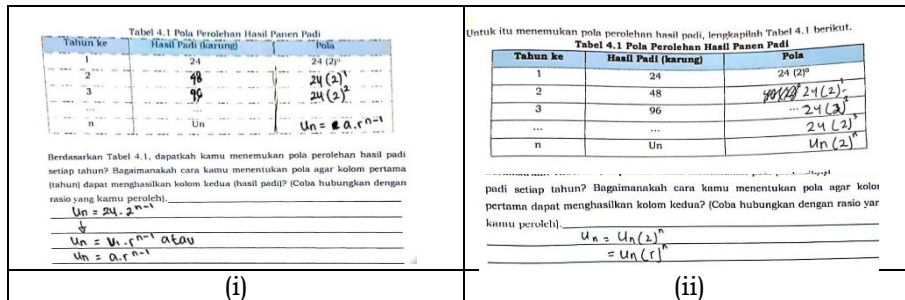 Tabel 4.1 Pola Perolehan Hasil Panen Padi
Tahun ke Hasil Padi (karung) Pola
1 24 24 (2)⁰
2 48 24 (2)¹
3 96 24 (2)²
... ...
n Un Un = a.rⁿ⁻¹
Berdasarkan Tabel 4.1, dapatkah kamu menemukan pola perolehan hasil padi
setiap tahun? Bagaimanakah cara kamu menentukan pola agar kolom pertama
(tahun) dapat menghasilkan kolom kedua (hasil padi)? (Coba hubungkan dengan
rasio yang kamu peroleh).
Un = 24 . 2ⁿ⁻¹
↓
Un = U₁ . rⁿ⁻¹ atau
Un = a.rⁿ⁻¹
(i)
Untuk itu menemukan pola perolehan hasil padi, lengkapilah Tabel 4.1 berikut.
Tabel 4.1 Pola Perolehan Hasil Panen Padi
Tahun ke Hasil Padi (karung) Pola
1 24 24 (2)⁰
2 48 24 (2)¹
3 96 ... 24 (2)²
... ... 24 (2)³
n Un Un (2)ⁿ
padi setiap tahun? Bagaimanakah cara kamu menentukan pola agar kolo
pertama dapat menghasilkan kolom kedua? (Coba hubungkan dengan rasio yar
kamu peroleh).
Un = Un (2)ⁿ
= Un (r)ⁿ
(ii)